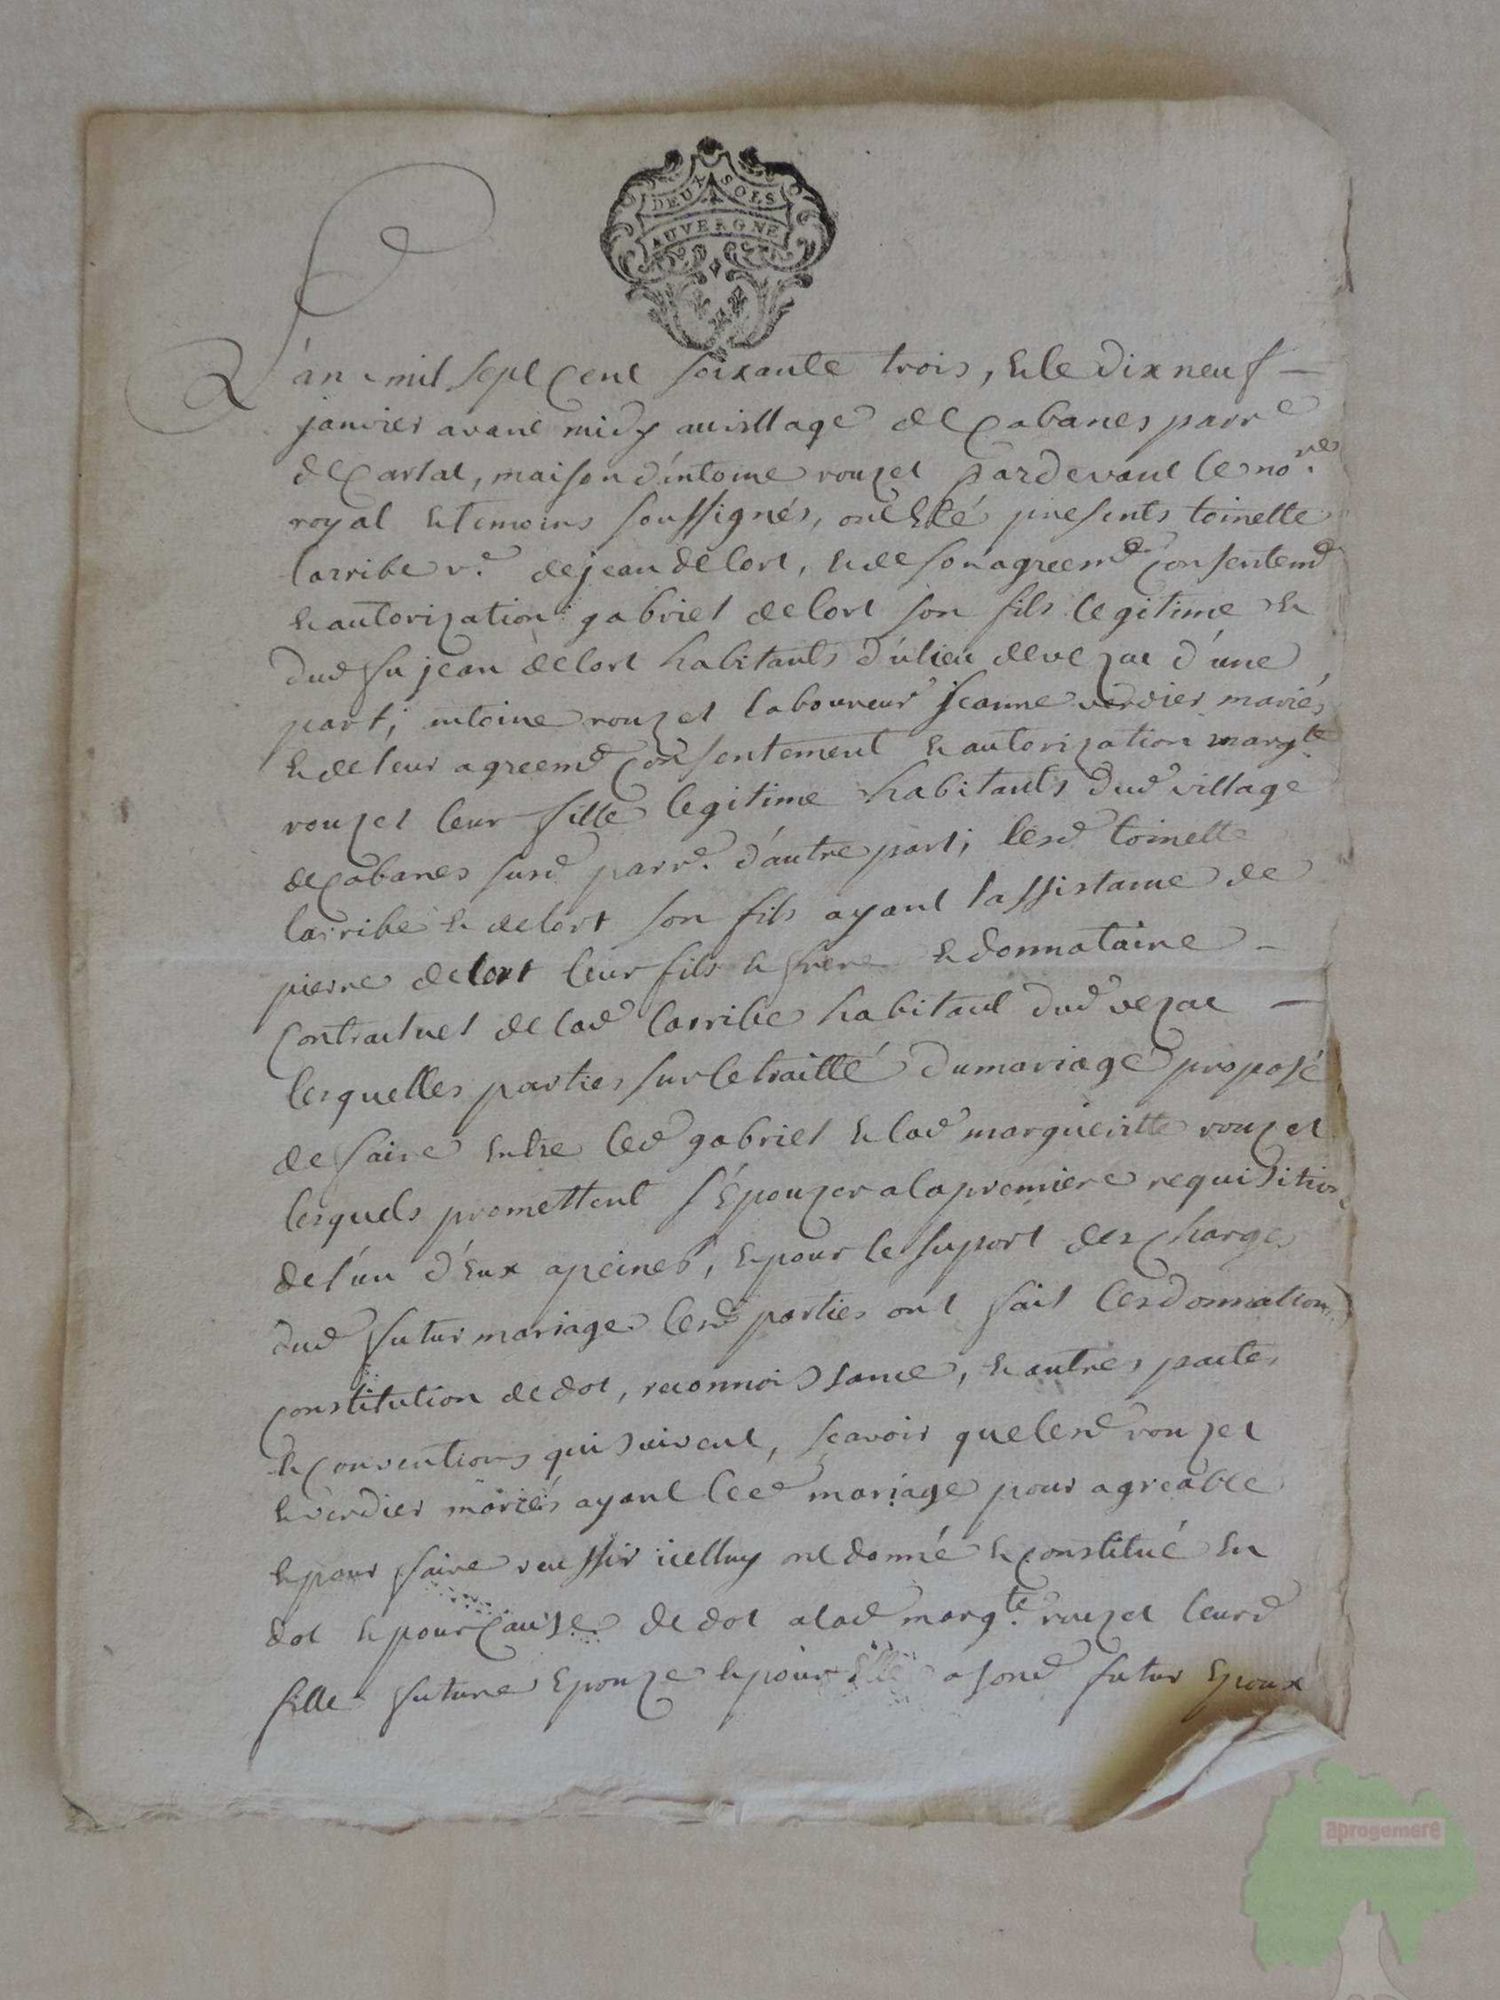 DEUX SOLS
AUVERGNE
L'an mil sept Cent soixante trois, & le dix neuf
janvier avant midy au village de Cabanes parre
de Carlat, maison d'intoine rouzet pardevant le nore
royal & temoins soussignés, ont Eté presents toinette
larribe ve de jean delort, & de son agreemt Consentemt
& autorization gabriel delort son fils legitime &
dud fu jean delort habitants d'u lieu de vezac d'une
part; intoine rouzet laboureur jeanne verdier mariés
& de leur agreemt Consentement & autorization margte
rouzet leur fille legitime habitants dud village
de Cabanes susd parre d'autre part; lesd toinette
larribe & delort son fils ayant lassistance de
pierre delort leur fils & frere & donnataire
Contractuel de lad larribe habitant dud vezac
lesquelles parties sur le traitté du mariage proposé
de faire Entre led gabriel & lad margueritte rouzet
lesquels promettent s'Epouzer a la premiere requisition
de l'un d'Eux a peines, & pour le suport des Charges
dud futur mariage lesd parties ont fait les donnations
Constitution de dot, reconnoissance, & autres pactes
& Conventions qui suivent, scavoir que lesd rouzet
& verdier mariés ayant led mariage pour agreable
& pour faire reussir icelluy ont donné & Constitué En
dot & pour Cause de dot a lad margte rouzet leurd
fille future Epouze & pour Elle a sond futur Epoux
aprogemere